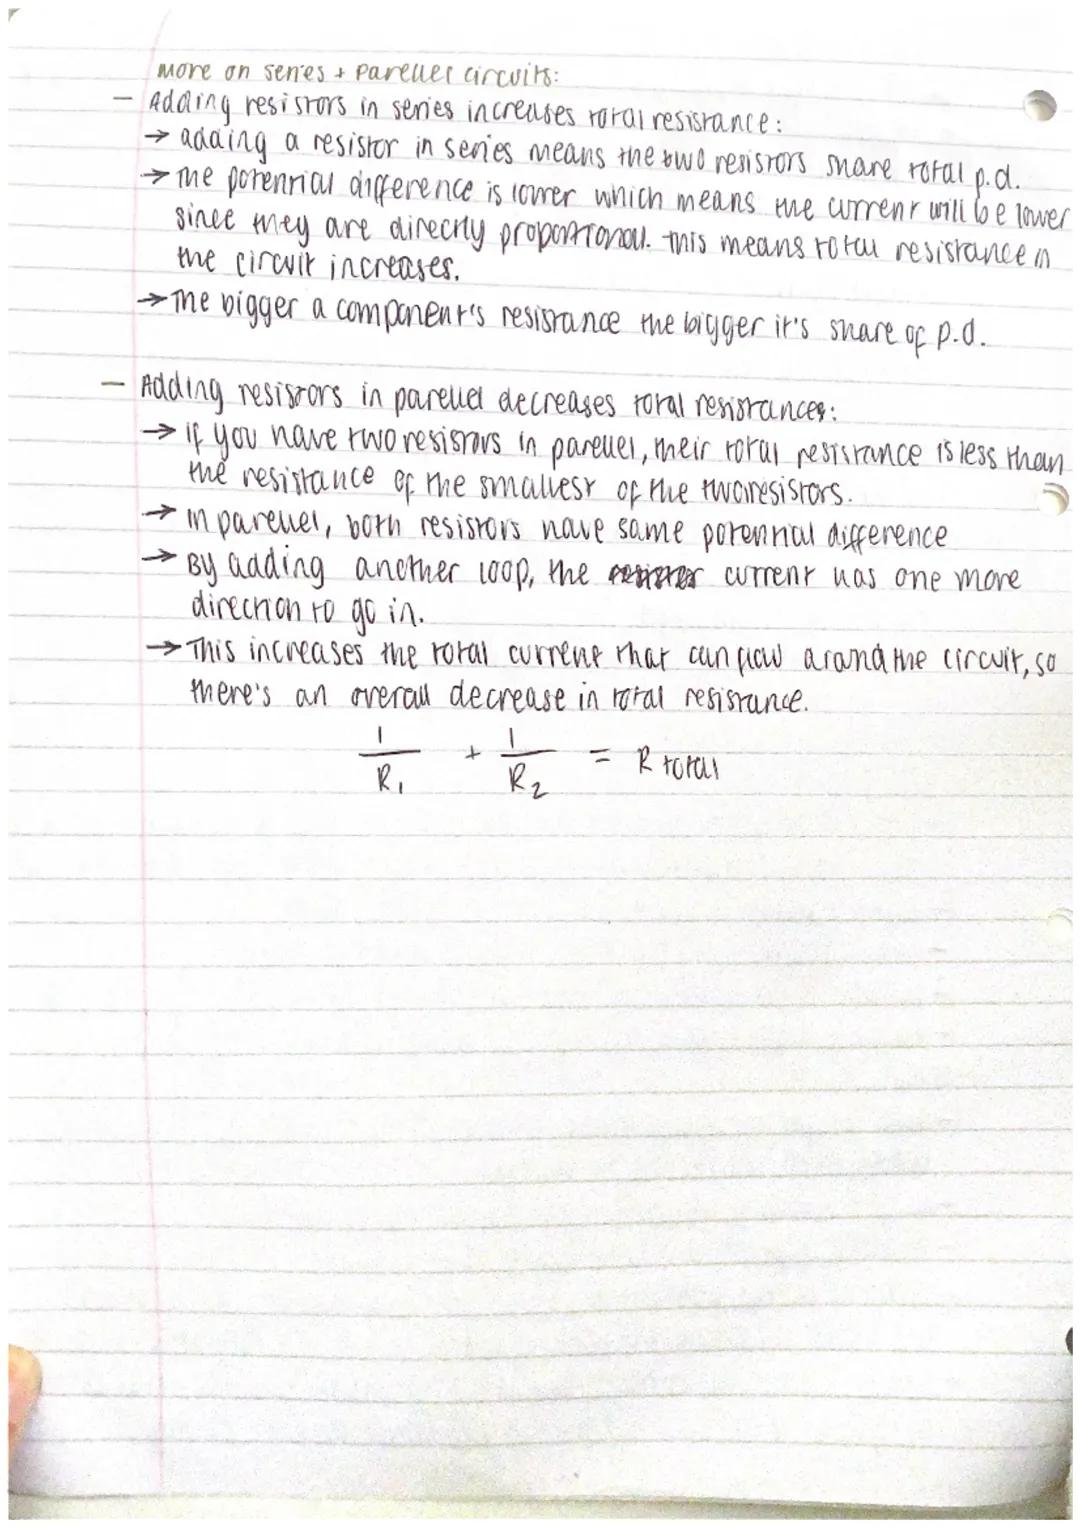 More on series + Pareller circuits:
- Adding resistors in series increases total resistance:
→ adding a resistor in series means the two resistors share total p.d.
→ The potential difference is lower which means the current will be lower
since they are directly proportional. This means total resistance in
the circuit increases.
→ The bigger a component's resistance the bigger it's share of p.d.
- Adding resistors in parellel decreases total resistances:
→ if you have two resistors in pareller, their total resistance is less than
the resistance of the smallest of the two resistors.
→ In pareller, both resistors have same potential difference
→ By adding another loop, the current has one more
direction to go in.
→ This increases the total current that can flow around the circuit, so
there's an overall decrease in total resistance.
1/R₁ + 1/R₂ = R total